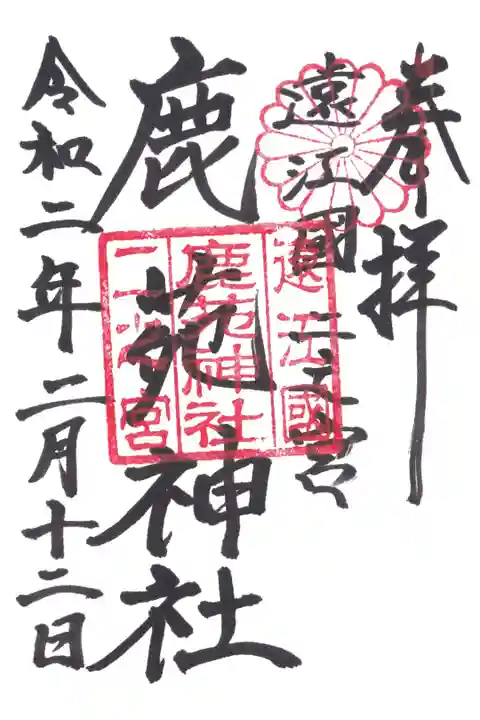 奉拝
遠江國二宮
鹿苑神社
令和二年二月十二日
遠江國
鹿苑神社
二之宮